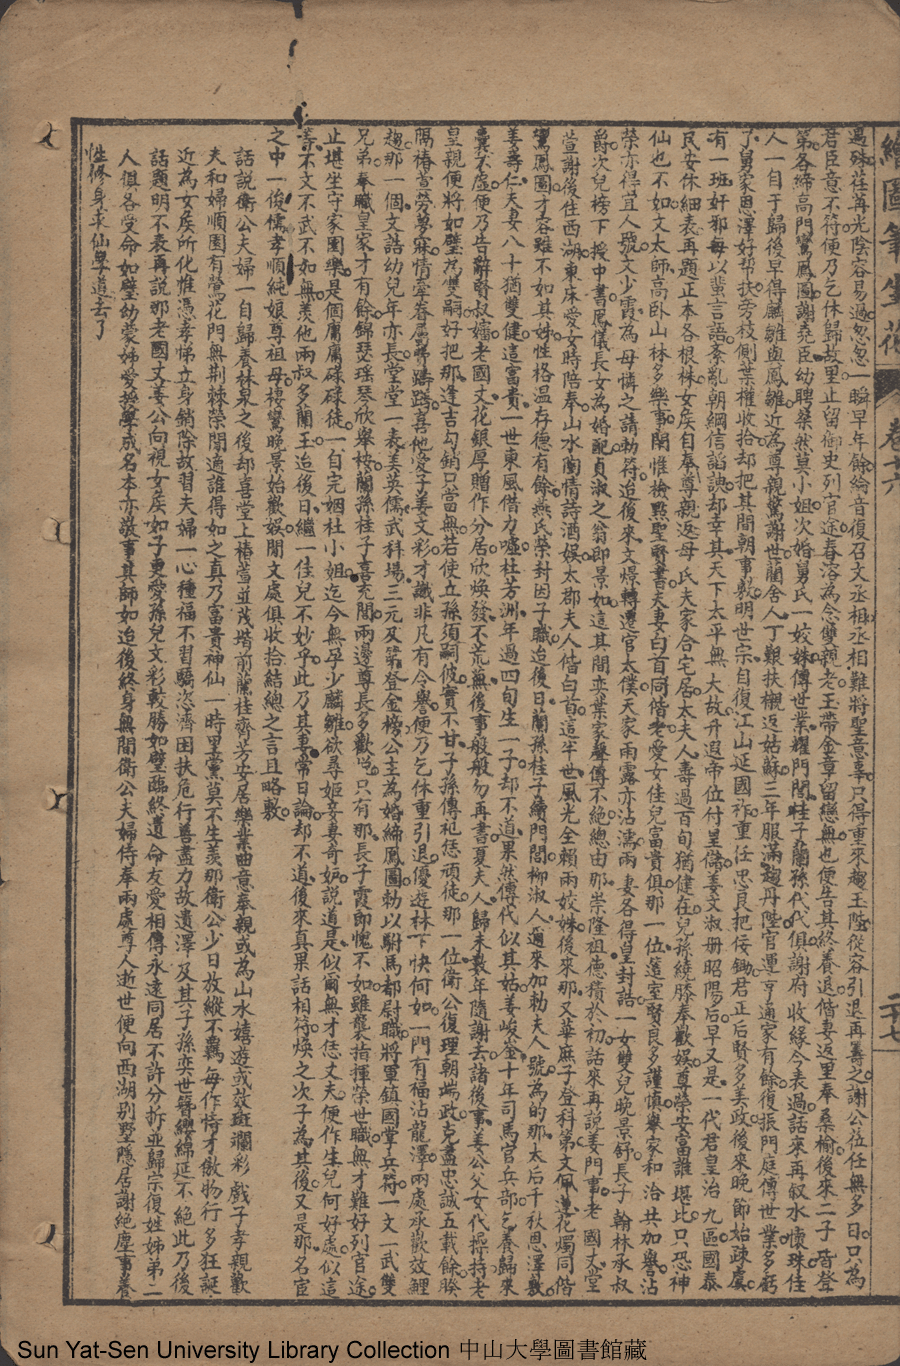 繪圖筆生花 卷十六 二十七
過殊荏苒光陰容易過忽忽一瞬早年餘綸音復召文丞相丞相難將聖意辜只得重來趨玉陛從容引退再籌之謝公位任無多日只為
君臣意不符便乃乞休歸故里止留御史列官途春溶為念雙親老玉帶金章留戀無也便告其終養退偕妻返里奉桑榆後來二子皆聲
第各締高門鸞鳳圖謝堯臣幼聘桀然莫小姐次婚舅氏一姣姝傳世業耀門閭桂子蘭孫代代俱謝府收緣今表過話來再叙水懷珠佳
人一自于歸後早得麟雛與鳳雛近為尊親驚謝世蘭舍人丁艱扶櫬返姑蘇三年服滿趨丹陛官運亨通家有餘復振門庭傳世業多虧
了舅家恩澤好帮扶旁枝側葉權收拾却把其間朝事敷明世宗自復江山延國祚重任忠良把佞鋤君正后賢多美政後來晚節始疎虞
有一班奸邪每以蜚言語紊亂朝綱信諂諛却幸其天下太平無大故升遐帝位付皇儲姜文淑册昭陽后早又是一代君皇治九區國泰
民安休細表再題正本各根株女戾自奉尊親返母氏夫家合宅居太夫人壽過百旬猶健在兒孫繞膝奉歡娛尊榮安富誰堪比只恐神
仙也不如文太師高卧山林多樂事閒惟檢點聖賢書夫妻白首同偕老愛女佳兒富貴俱那一位蓮室賢良多謹慎舉家和洽共加譽沾
榮亦得宜人號文少霞為母憐之請勅符迨後來文燝轉遷官太僕天家雨露亦沾濡兩妻各得皇封誥一女雙兒晚景舒長子翰林承叔
爵次兒榜下授中書鳳儀長女為婚配貞淑之翁即景如這其間奕葉家聲傳不絕總由那崇隆祖德積於初話來再說姜門事老國丈堂
萱謝後住西湖東床愛女時陪奉山水閒情詩酒娛太郡夫人偕白首這半世風光全賴兩姣姝後來那又華麻子登科第文佩蓮花燭同偕
鸞鳳圖才容雖不如其姊性格溫存德有餘燕氏榮封因子職迨後日蘭孫桂子續門閭柳淑人邇來加勅夫人號為的那太后千秋恩澤敷
姜壽仁夫妻八十猶雙健這富貴一世東風借力噓杜芳洲年過四旬生一子却不道果然傳代似其姑姜峻釜十年司馬官兵部乞養歸來
囊不虛便乃告辭賢叔嬸老國丈花銀厚贈作分居欣煥發不荒無後事般般勿再書夏夫人歸未數年隨謝去諸後事姜公父女代操持老
皇親便將如璧為雙嗣好把那逢吉勾銷只當無若使立孫須嗣彼實不甘子孫傳祀恁頑徒那一位衛公復理朝端政克盡忠誠五載餘暌
隔椿萱勞夢寐情牽眷屬夢躊躇喜他愛子姜文彩才識非凡有令譽便乃乞休重引退優遊林下快何如一門有福沾龍澤兩處承歡效鯉
趨那一個文誥幼兒年亦長堂堂一表美英儒武科場三元及第登金榜公主為婚締鳳圖勅以駙馬都尉職將軍鎮國掌兵符一文一武雙
兄弟奉職皇家才有餘錦瑟瑤琴欣舉桉蘭孫桂子喜充閭兩邊尊長多歡悦只有那長子霞郎愧不如雖襲指揮榮世職無才難好列官途
止堪坐守家園樂是個庸庸碌碌徒一自完姻杜小姐迄今無孕少麟雛欲尋姬妾妻奇妒說道是似爾無才恁丈夫便作生兒何好處似這
等不文不武不如無羨他兩叔多蘭玉迨後日繼一佳兒不妙乎此乃其妻常日論却不道後來真果話相符煥之次子為其後又是那名宦
之中一俊儒孝順純娘尊祖母棲鸞晚景始歡娛閒文處俱收拾結總之言且略敷
話說衛公夫婦一自歸養林泉之後却喜堂上椿萱並茂堦前蘭桂齊芳安居樂業曲意奉親或為山水嬉遊或效斑斕彩戲子孝親歡
夫和婦順園有鶯花門無荆棘榮閒適誰得如之真乃富貴神仙一時里黨莫不生羨那衛公少日放縱不羈每作恃才傲物行多狂誕
近為女戾所化惟憑孝悌立身銷除故習夫婦一心種福不習驕恣濟困扶危行善盡力故遺澤及其子孫奕世簪纓綿延不絕此乃後
話題明不表再說那老國丈姜公向視女戾如子更愛孫兒文彩較勝如璧臨終遺命友愛相傳永遠同居不許分折並歸宗復姓姊弟二
人俱各受命如璧幼蒙姊愛授學成名本亦敬事其師如迨後終身無間衛公夫婦侍奉兩處尊人逝世便向西湖别墅隱居謝絕塵事養
性修身求仙學道去了